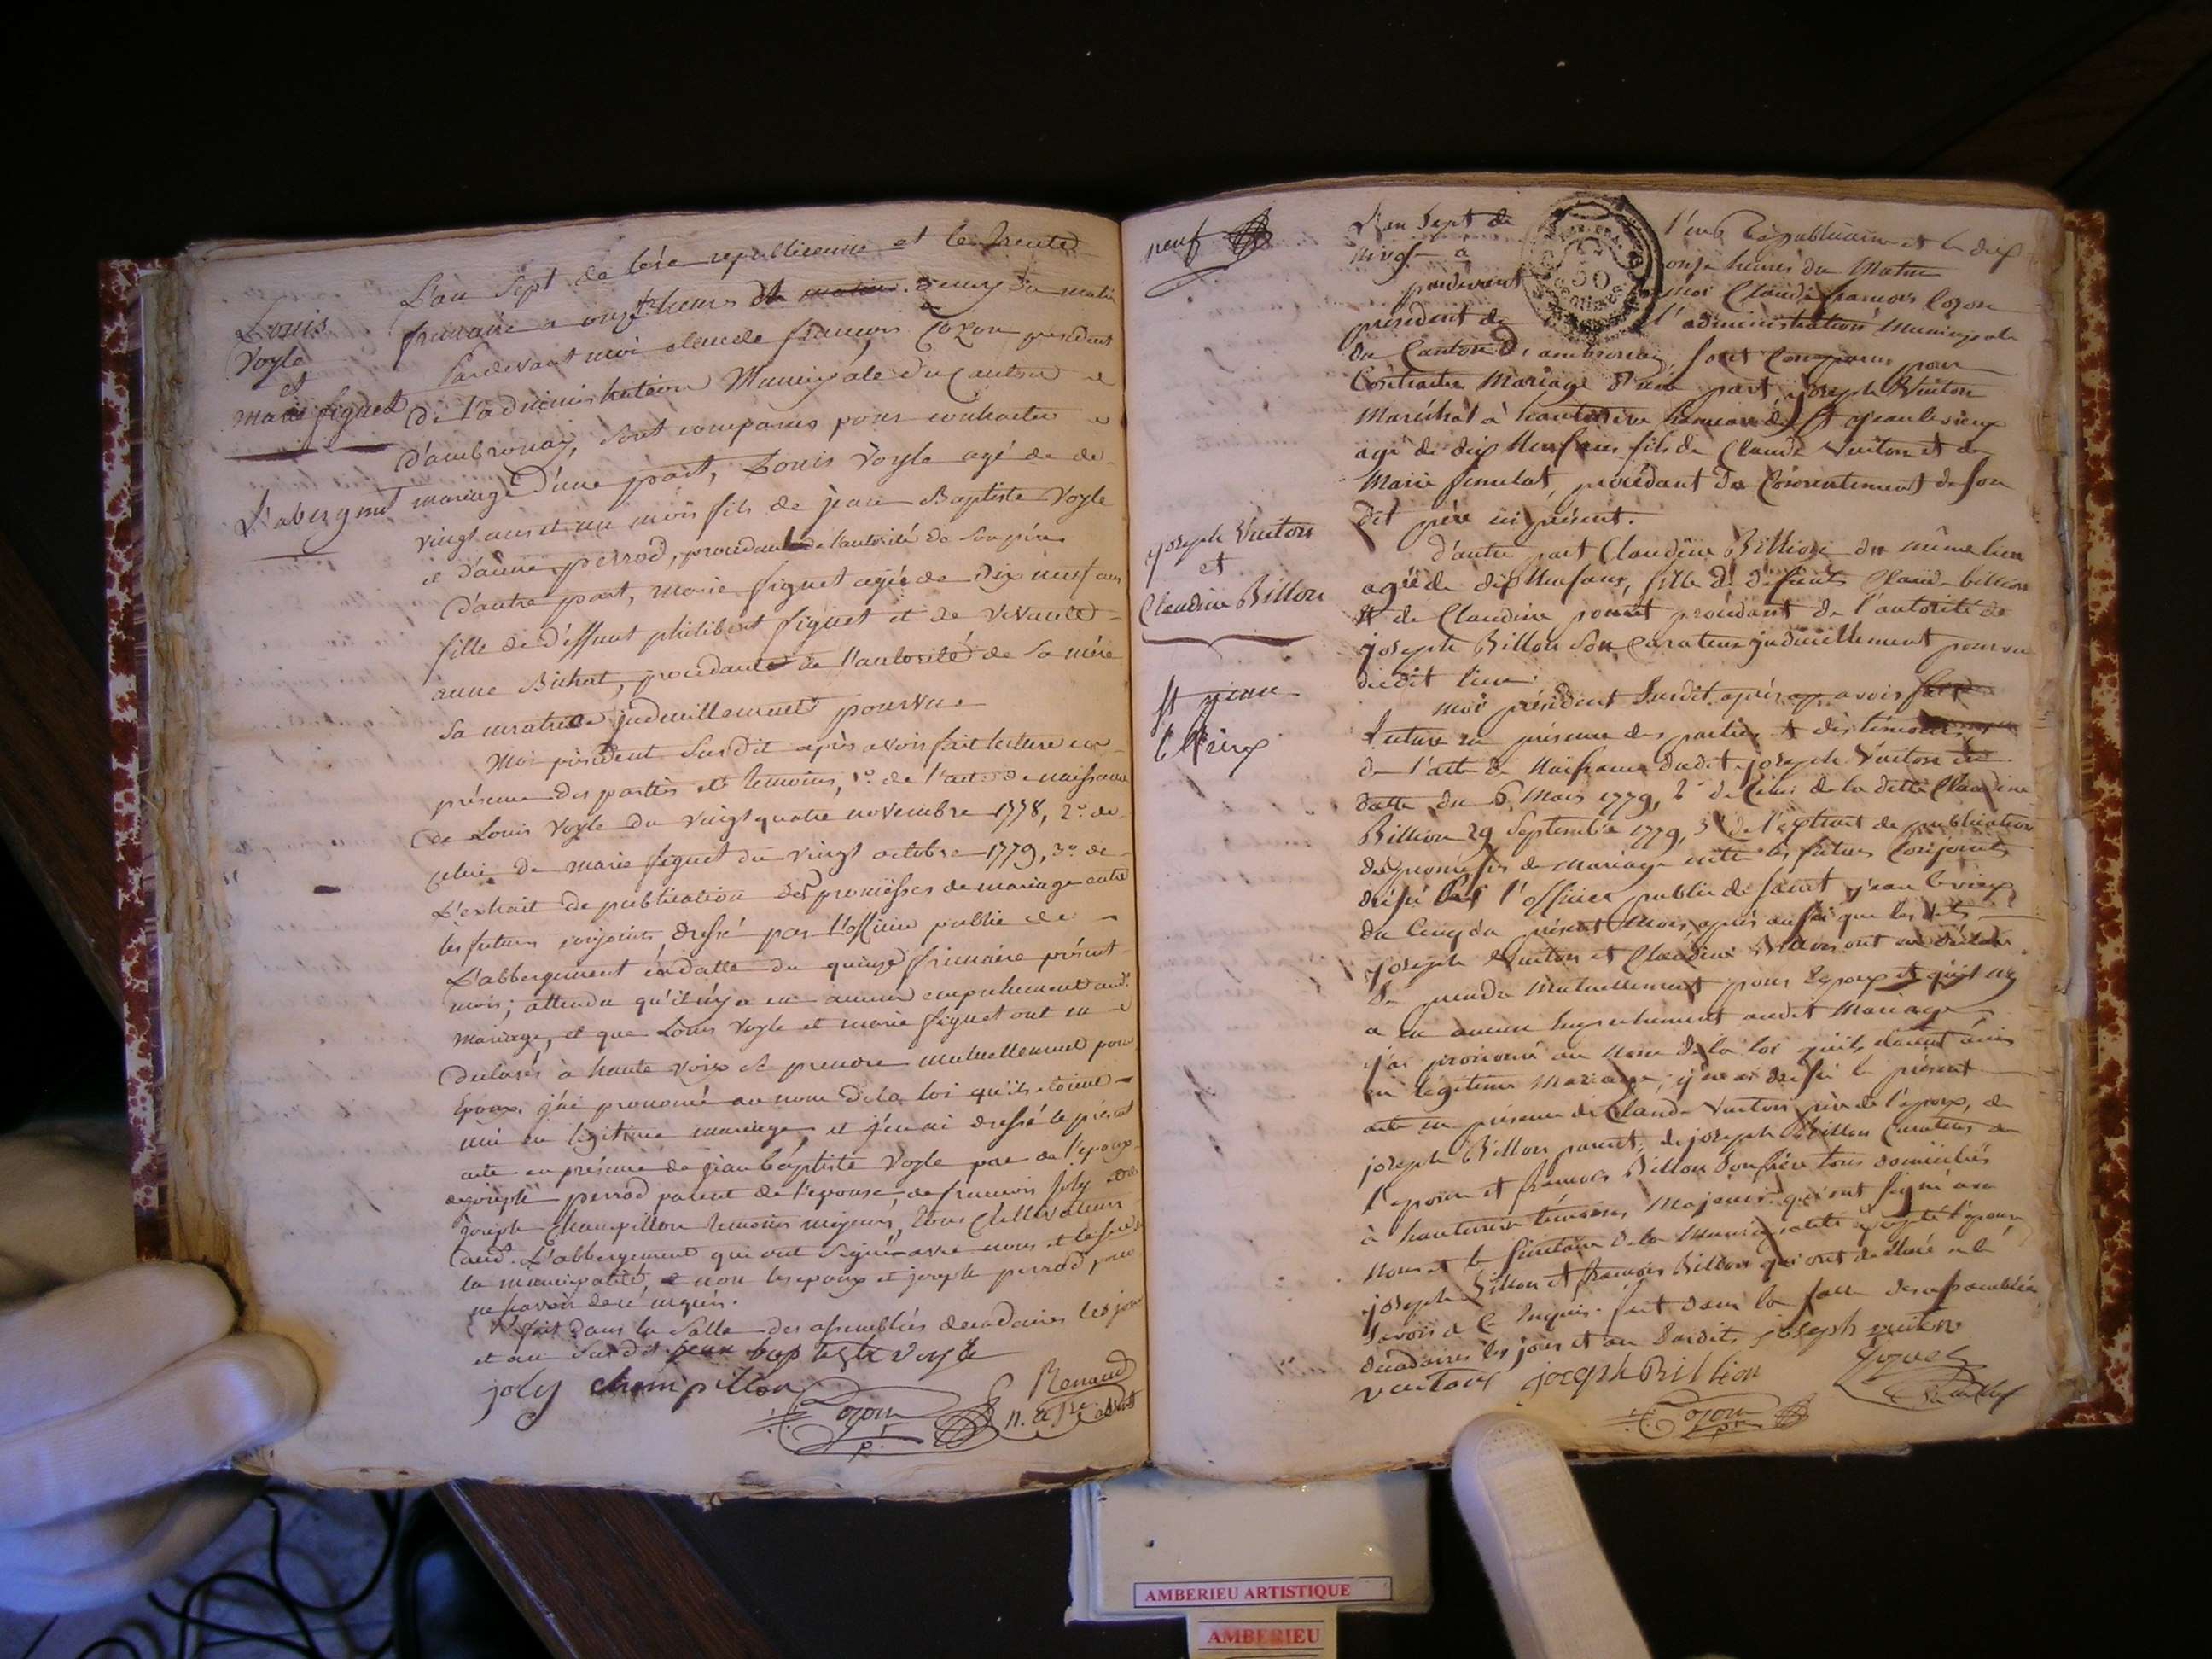 Louis
Voyle
et
marie figuet
L'abergmt
L'an Sept de l'ère republicaine et le trente
frimaire a onze heures demy du matin
Pardevant moi claude françois Cozon president
de l'administration Municipale du Canton
d'ambronay, sont comparus pour contracter
mariage d'une part, Louis Voyle agé de
vingt ans et un mois fils de jean Baptiste Voyle
et d'anne perrod, procedant de l'autorité de son père
d'autre part, marie figuet agée de Dix neuf ans
fille de deffunt philibert figuet et de vivante
anne Bichat, procedante de l'autorité de sa mère
sa curatrice judiciellement pourvue
Moi président susdit après avoir fait lecture en
présence des parties et temoins, 1º de l'acte de naissance
de Louis Voyle du vingt quatre novembre 1778, 2º de
celui de marie figuet du vingt octobre 1779, 3º de
L'extrait de publication des promesses de mariage entre
les futurs conjoints, dressé par l'officier public de
L'abbergement en datte du quinze frimaire présent
mois; attendu qu'il n'y a eu aucun empechement audt
mariage, et que Louis Voyle et marie figuet ont
declaré à haute voix se prendre mutuellement pour
Epoux, j'ai prononcé au nom de la loi qu'ils etoient
uni en legitime mariage, et j'en ai dressé le présent
acte en présence de jean baptiste Voyle pere de l'epoux
de joseph perrod parent de l'epouse, de francois joly et de
joseph Champillon temoins majeurs, tous Cultivateurs
audt. L'abbergement qui ont signé avec nous et le
la municipalité, et non les epoux et joseph perrod pour
ne savoir de ce enquis.
fait Dans la Salle des assemblées decadaires les jour
et an susdit jean baptiste voyle
joly champillon
Renaud
Cozon
p.t
neuf
L'an Sept de l'ere Republicaine et le dix
nivose a onze heures du Matin
pardevant moi Claude francois Cozon
president de l'administration Municipale
du Canton d'ambronay sont Comparus pour
Contracter Mariage d'une part, joseph Vuiton
Maréchal à hauterive hameau de St jean le vieux
agé de dix Neuf ans, fils de Claude Vuiton et de
Marie femelat, procédant du Consentement de son
dit père ici présent.
joseph Vuiton
et
Claudine Billon
St jean
le vieux
d'autre part Claudine Billion du même lieu
agée de dix Neuf ans, fille de défunts Claude billion
et de Claudine procédant de l'autorité de
joseph Billon son Curateur judiciellement pourvu
dudit lieu.
moi président Susdit après avoir
lecture en présence des parties et des témoins
de l'acte de Naissance dudit joseph Vuiton en
datte du 6 Mars 1779, 2º de Celui de la ditte Claudine
Billion 29 Septembre 1779, 3º de l'extrait de publication
des promesses de mariage entre les futurs Conjoints
dressé par l'officier public de saint jean le vieux
du Cinq du présent Mois, après aussi que les dits
joseph Vuiton et Claudine Billon ont déclaré
se prendre Mutuellement pour Epoux et qu'il n'y
a eu aucun Empechement audit Mariage
j'ai prononcé au Nom de la loi qu'ils etoient unis
en légitime Mariage, j'en ai dressé le présent
acte en présence de Claude Vuiton père de l'epoux, de
joseph Billon parent, de joseph Billon Curateur de
l'epouse et francois Billon son frère tous domiciliés
à hauterive témoins Majeurs qui ont signé avec
Nous et le secretaire de la Municipalité excepté l'epouse
joseph Billon et francois Billon qui ont déclaré ne le
savoir de Ce Enquis. fait dans la salle des assemblées
decadaires les jour et an Susdits. joseph vuiton
vuiton joseph Billion
Cozon
p.t
AMBERIEU ARTISTIQUE
AMBERIEU